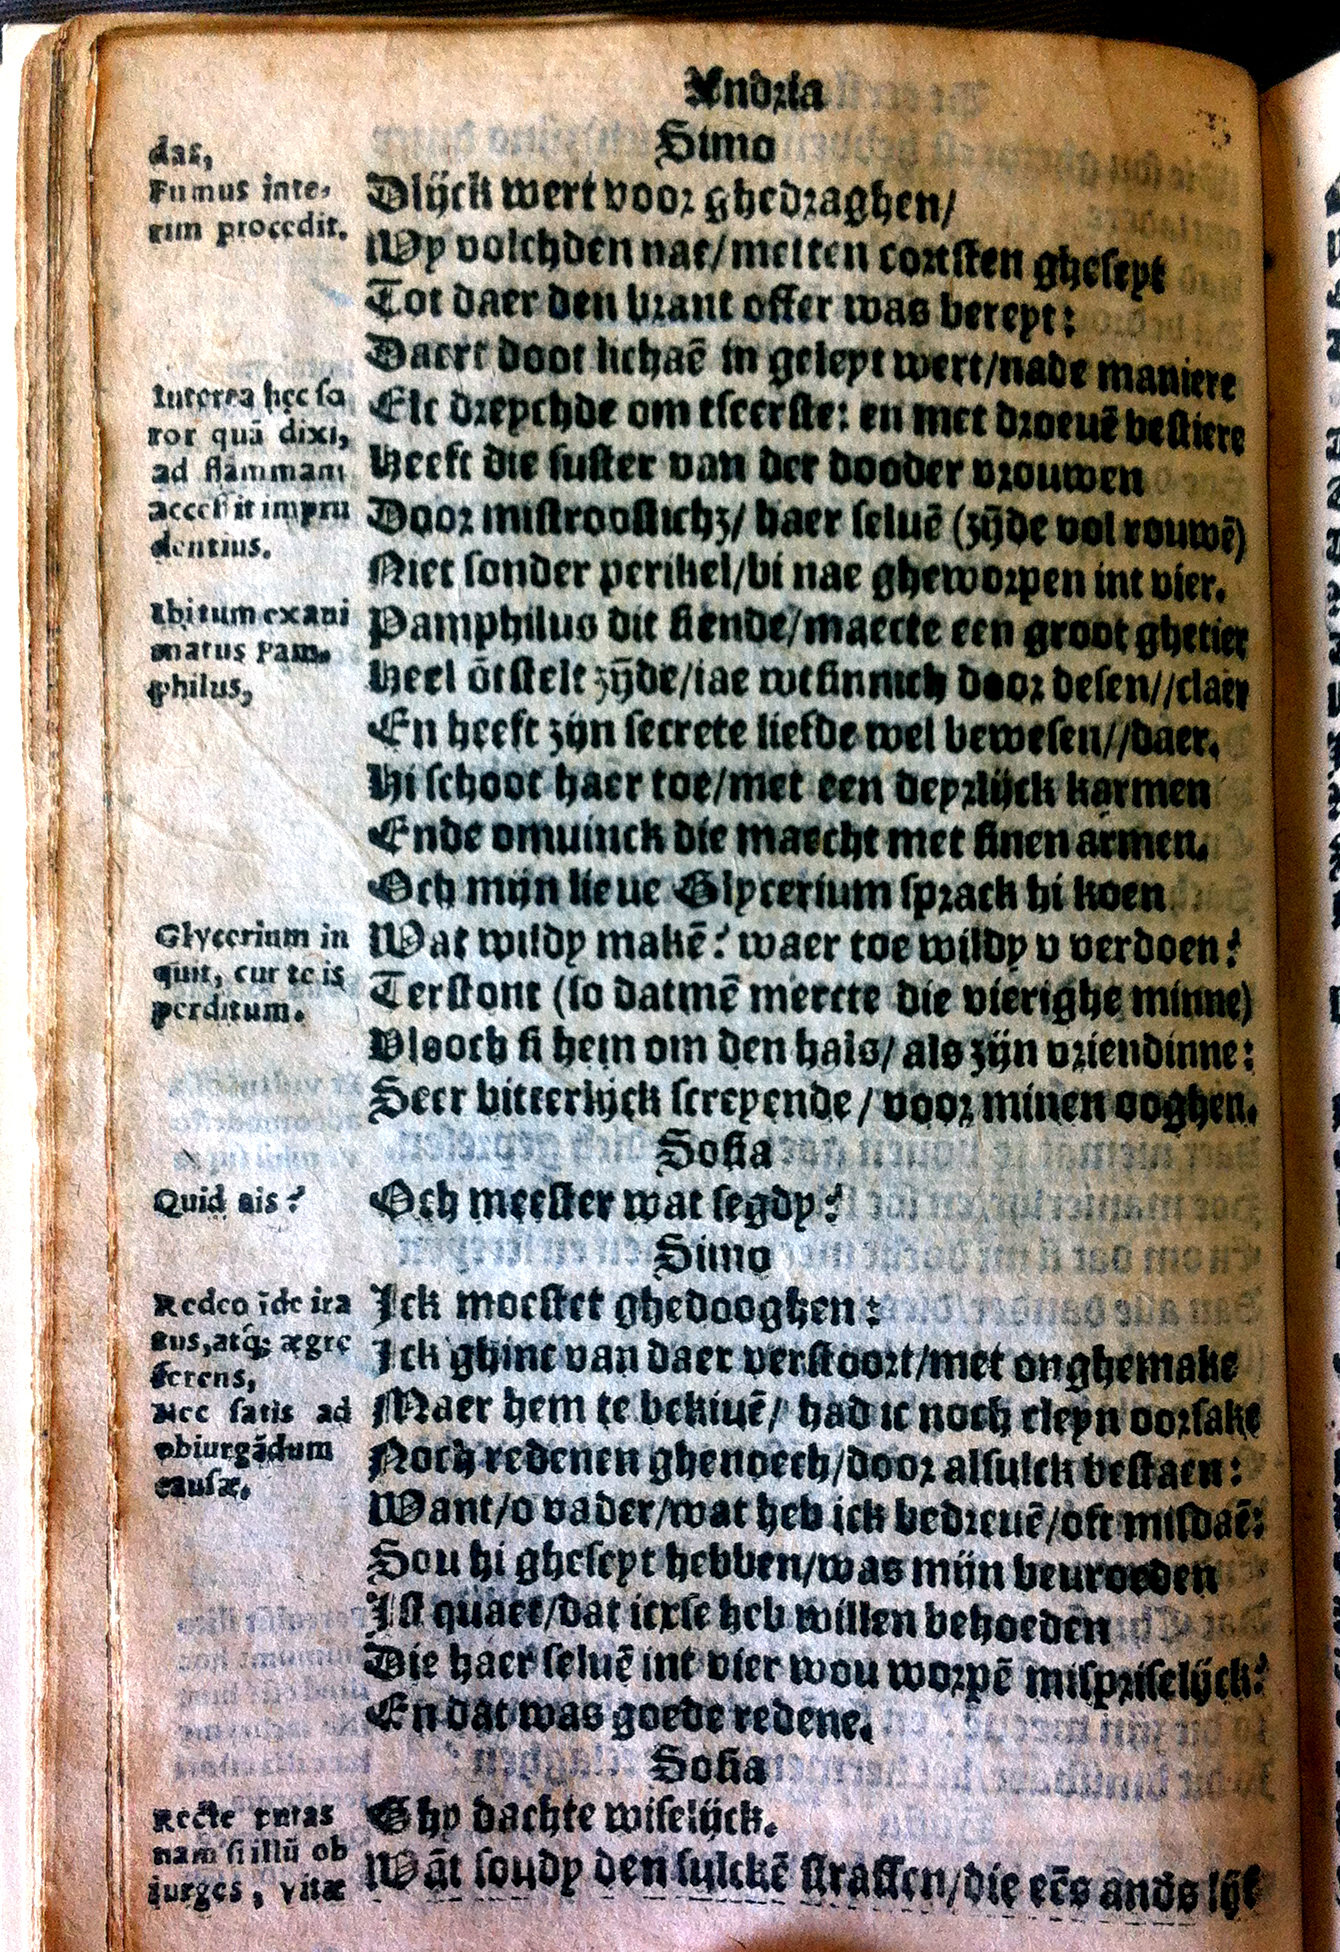 Andria
Simo
das,
Fumus inte-
rim procedit.
Dlijck wert voor ghedraghen/
Wy volchden nae/metten cortsten gheseyt
Tot daer den brant offer was bereyt:
Daert doot lichaē in geleyt wert/nade maniere
Interea hęc so
ror quā dixi,
ad flāmmam
accessit impru
dentius.
Elc dreychde om tseerste: en met droeuē bestiere
Heeft die suster van der dooder vrouwen
Door mistroostichz/ haer seluē (zijde vol rouwē)
Niet sonder perikel/bi nae gheworpen int vier.
Ibi tum exani
matus Pam-
philus,
Pamphilus dit siende/maecte een groot ghetier
Heel ōtstelt zijde/iae wtsinnich door desen//claer
En heeft zijn secrete liefde wel bewesen//daer.
Hi schoot haer toe/met een deyrlijck karmen
Ende omuinck die maecht met sinen armen.
Och mijn lieue Glycerium sprack hi koen
Glycerium in
quit, cur te is
perditum.
Wat wildy makē? waer toe wildy v verdoen?
Terstont (so datmē mercte die vierighe minne)
Vlooch si hem om den hals/ als zijn vriendinne:
Seer bitterlijck screyende/ voor minen ooghen.
Sosia
Quid ais?
Och meester wat segdy?
Simo
Redeo īde ira
tus,atq; ægrę
ferens,
Nec satis ad
obiurgādum
causæ.
Ick moestet ghedooghen:
Ick ghinc van daer verstoort/met onghemake
Maer hem te bekiuē/ had ic noch cleyn oorsake
Noch redenen ghenoech/door alsulck bestaen:
Want/o vader/wat heb ick bedreuē/oft misdaē:
Sou hi gheseyt hebben/was mijn beuroeden
Ist quaet/dat icxse heb willen behoeden
Die haer seluē int vier wou worpē misprijselijck?
En dat was goede redene.
Sosia
Recte putas
nam si illū ob
iurges, vitæ
Ghy dachte wiselijck.
Wāt soudy den sulckē straffen/die eēs ands lijf